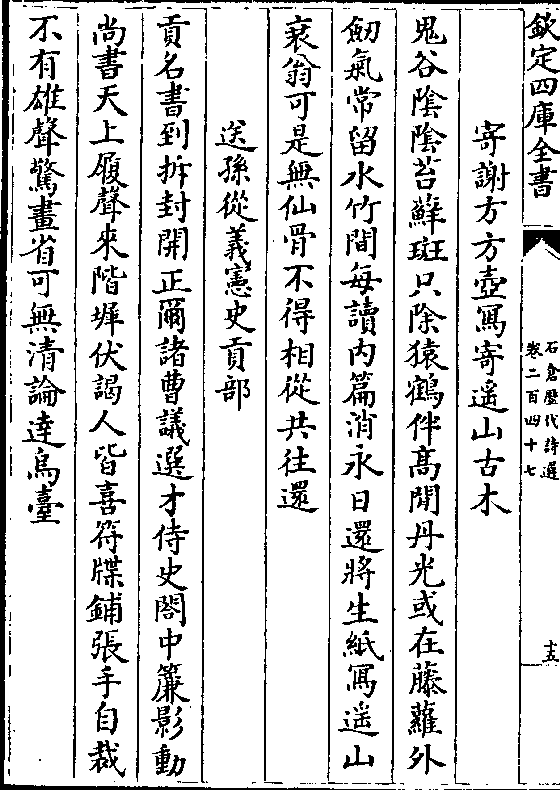 欽定四庫全書
石倉歷代詩選
卷二百四十七
十五
寄謝方方壺寫寄遥山古木
鬼谷陰陰苔蘚斑只除猿鶴伴髙閒丹光或在藤蘿外
劒氣常留水竹間每讀内篇消永日還將生紙寫遥山
衰翁可是無仙骨不得相從共往還
送孫從義憲史貢部
貢名書到拆封開正爾諸曹議選才侍史閤中簾影動
尚書天上履聲來階墀伏謁人皆喜符牒鋪張手自裁
不有雄聲驚畫省可無清論達烏臺